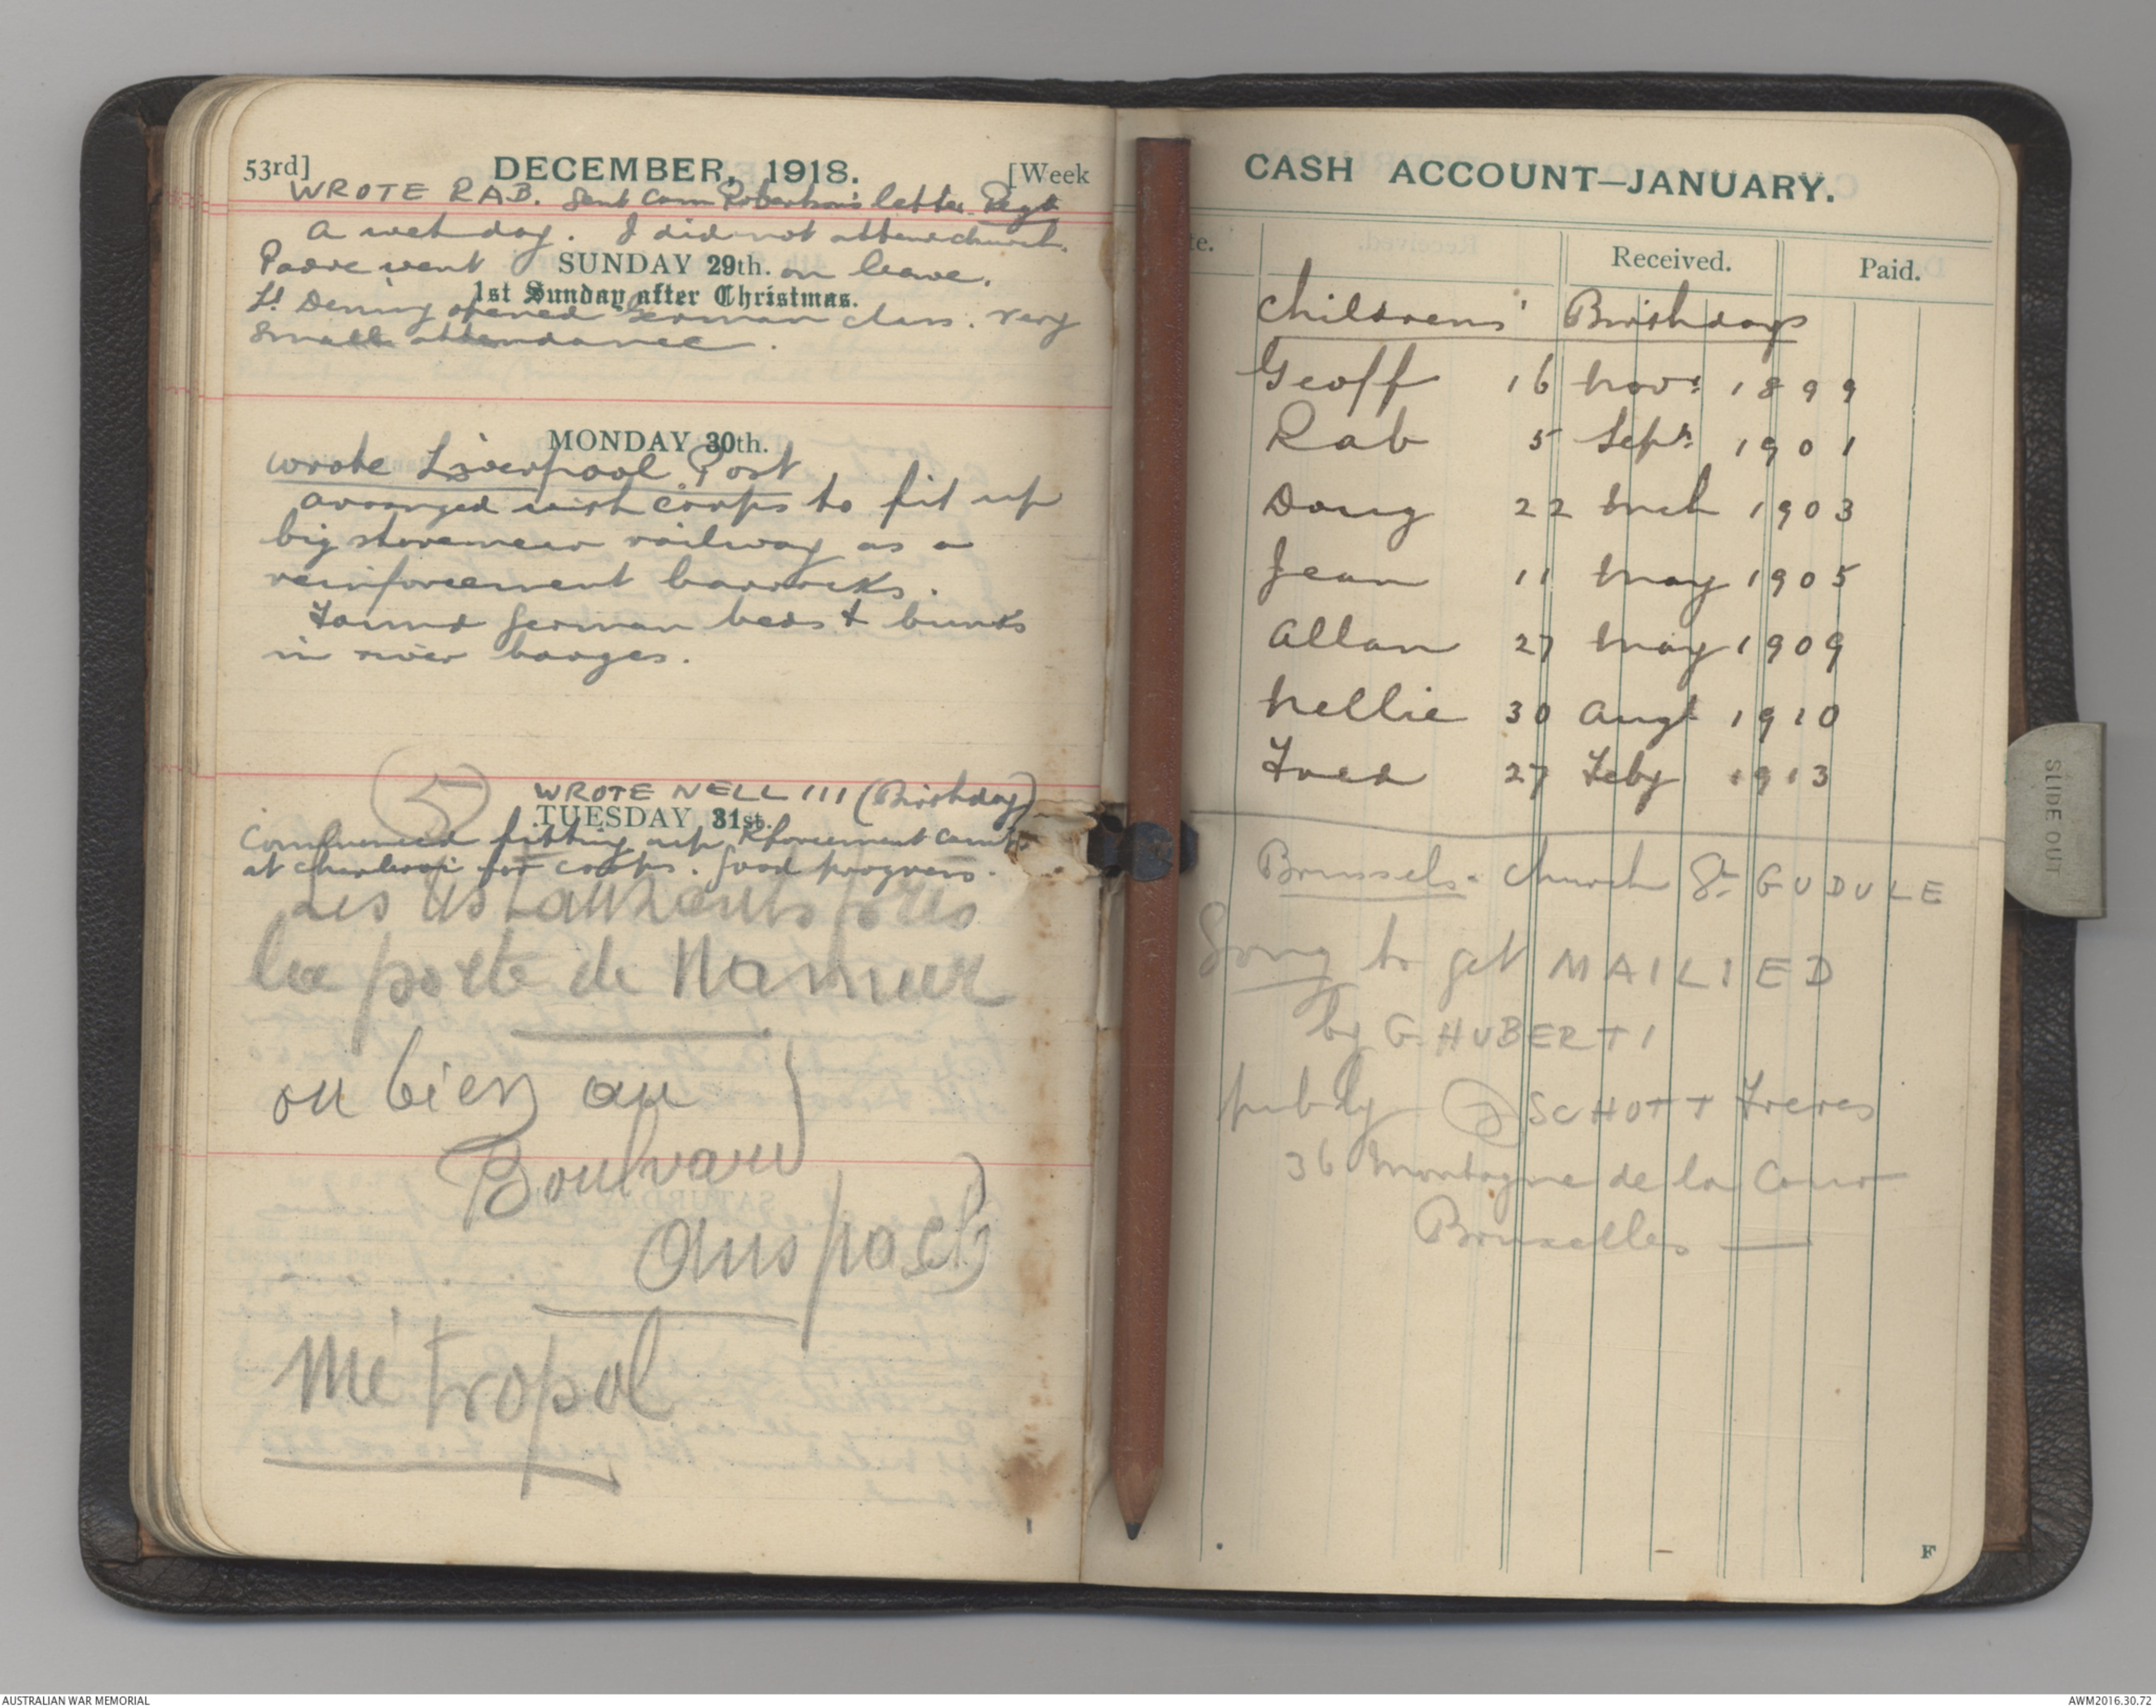 53rd] DECEMBER, 1918. [Week
WROTE RAB. Sent Com Robertson's letter Regt
A wet day. I did not attend church.
Padre went SUNDAY 29th. on leave.
1st Sunday after Christmas.
Lt Dening opened German class. very
small attendance.
MONDAY 30th.
wrote Liverpool Post
arranged with corps to fit up
big storemens railway as a
reinforcement barracks.
Found German beds & bunks
in river barges.
5
WROTE NELL 111 (Birthday)
TUESDAY 31st.
Commenced fitting up Rforcement Camp
at Charleroi for corps. Good progress.
Les restaurants près
la porte de Namur
ou bien au
Boulvard
Anspach
Métropol
CASH ACCOUNT—JANUARY.
te. Received. Paid.
Childrens' Birthdays
Geoff 16 Novr 1899
Rab 5 Sepr 1901
Doug 22 Mch 1903
Jean 11 May 1905
Allan 27 May 1909
Nellie 30 Augt 1910
Fred 27 Feby 1913
Brussels. Church St GUDULE
Song to get MAILIED
by G. HUBERTI
pubdy SCHOTT Freres
36 Montagne de la Cour
Bruxelles —
F
SLIDE OUT
AUSTRALIAN WAR MEMORIAL
AWM2016.30.72